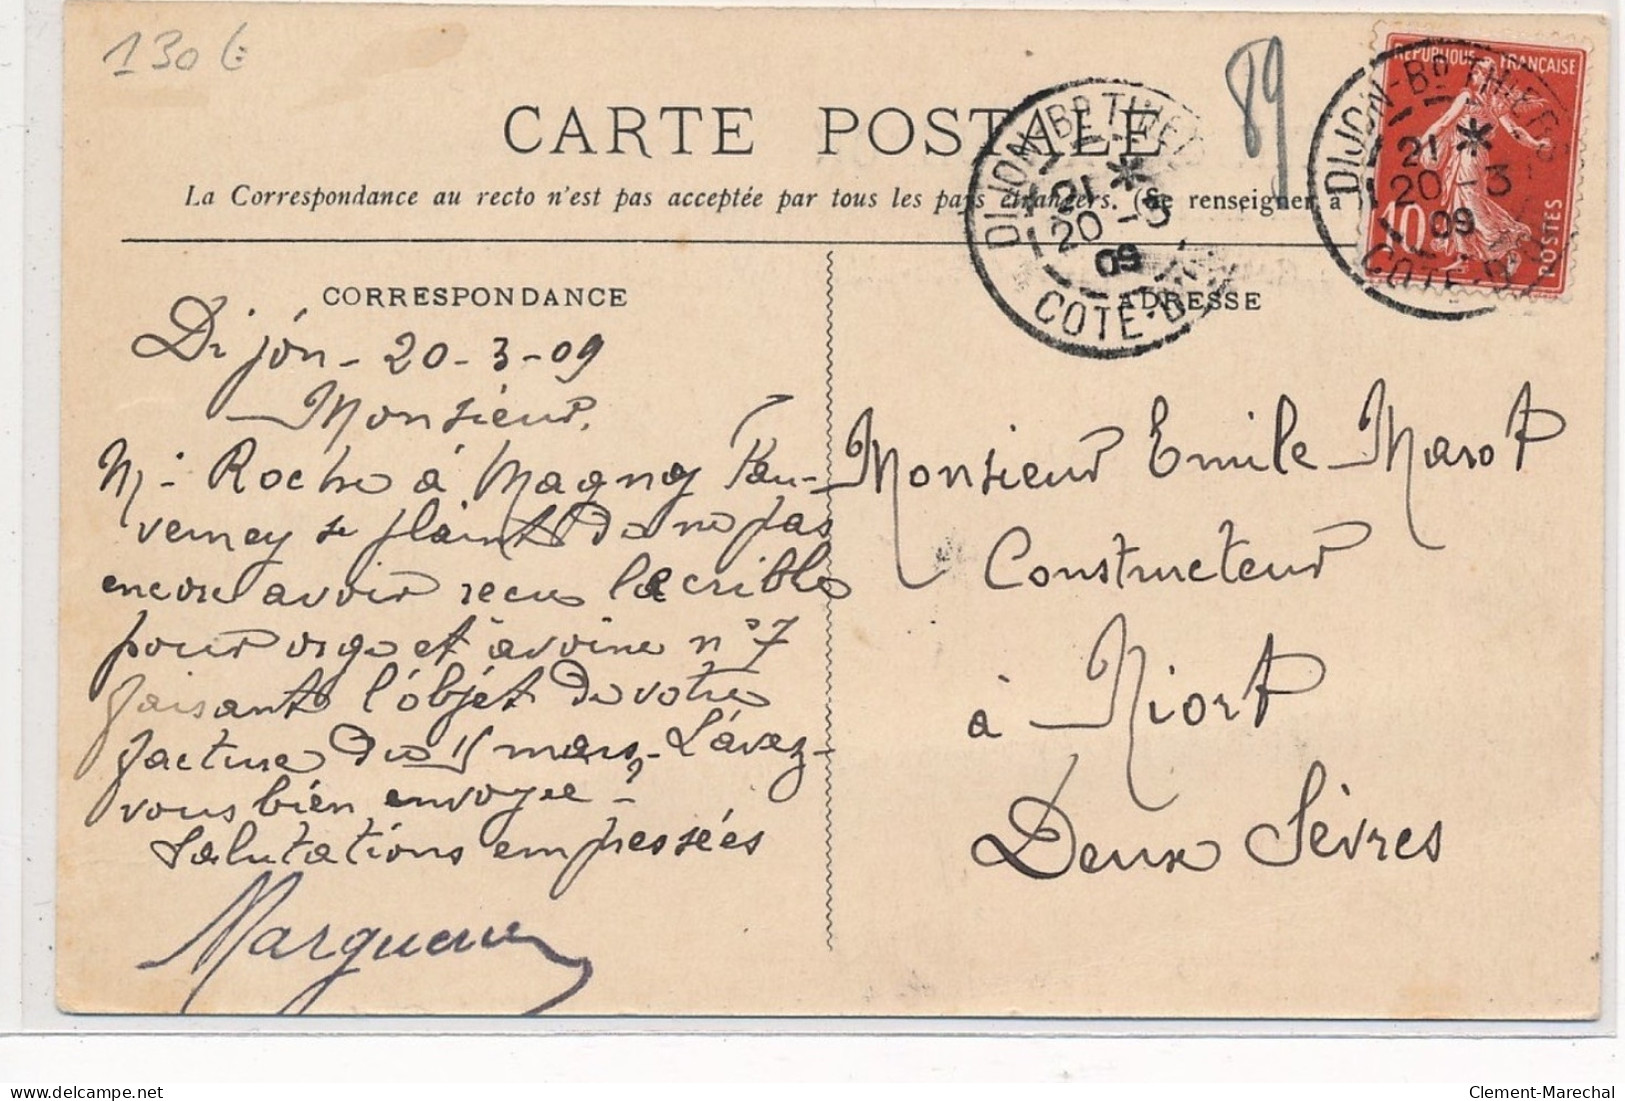 130 €
CARTE POSTALE
89
La Correspondance au recto n'est pas acceptée par tous les pays étrangers. (Se renseigner à
REPUBLIQUE FRANÇAISE
10
POSTES
DIJON-Bd THIERS
21 *
20 - 3
09
COTE-D'OR
DIJON-Bd THIERS
21 *
20 - 3
09
COTE-D'OR
CORRESPONDANCE
Dijon - 20 - 3 - 09
Monsieur.
Mr Roche à Magny Fau-
verney se plaint de ne pas
encore avoir reçu le crible
pour orge et avoine n° 7
faisant l'objet de votre
facture du 15 mars - L'avez-
vous bien envoyée ?
Salutations empressées
ADRESSE
Monsieur Emile Marot
Constructeur
à Niort
Deux Sèvres
Clement-Marechal
https://www.delcampe.net